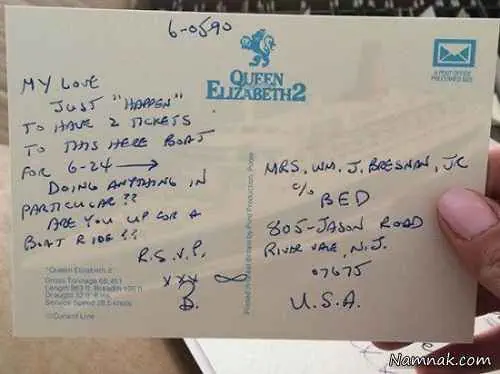 6-0590
QUEEN
ELIZABETH 2
A POST OFFICE
PREFERRED SIZE
MY LOVE
JUST "HAPPEN"
TO HAVE 2 TICKETS
TO THIS HERE BOAT
FOR 6-24 →
DOING ANYTHING IN
PARTICULAR??
ARE YOU UP FOR A
BOAT RIDE!!
R.S.V.P.
XXX ∞
B.
"Queen Elizabeth 2"
Gross Tonnage 66,451
Length 963 ft. Breadth 105 ft
Draught 32 ft
Service Speed 28.5 knots
Cunard Line
Production, Poole
MRS. WM. J. BRESNAN, JR
c/o
BED
805-JASON ROAD
RIVER VALE, N.J.
07675
U.S.A.
Namnak.com